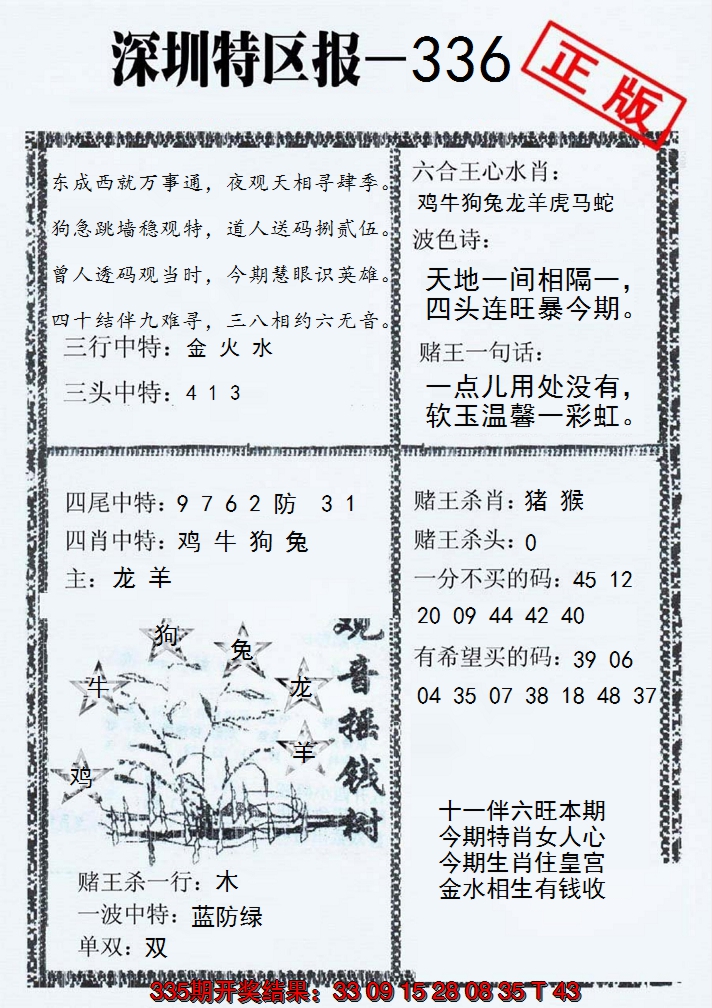 深圳特区报-336
正版
东成西就万事通，夜观天相寻肆季。
狗急跳墙稳观特，道人送码捌贰伍。
曾人透码观当时，今期慧眼识英雄。
四十结伴九难寻，三八相约六无音。
三行中特：金 火 水
三头中特：4 1 3
六合王心水肖：
鸡牛狗兔龙羊虎马蛇
波色诗：
天地一间相隔一，
四头连旺暴今期。
赌王一句话：
一点儿用处没有，
软玉温馨一彩虹。
四尾中特：9 7 6 2 防 3 1
四肖中特：鸡 牛 狗 兔
主：龙 羊
狗
兔
牛
龙
羊
鸡
观音摇钱树
赌王杀一行：木
一波中特：蓝防绿
单双：双
赌王杀肖：猪 猴
赌王杀头：0
一分不买的码：45 12
20 09 44 42 40
有希望买的码：39 06
04 35 07 38 18 48 37
十一伴六旺本期
今期特肖女人心
今期生肖住皇宫
金水相生有钱收
335期开奖结果：33 09 15 28 08 35 T 43